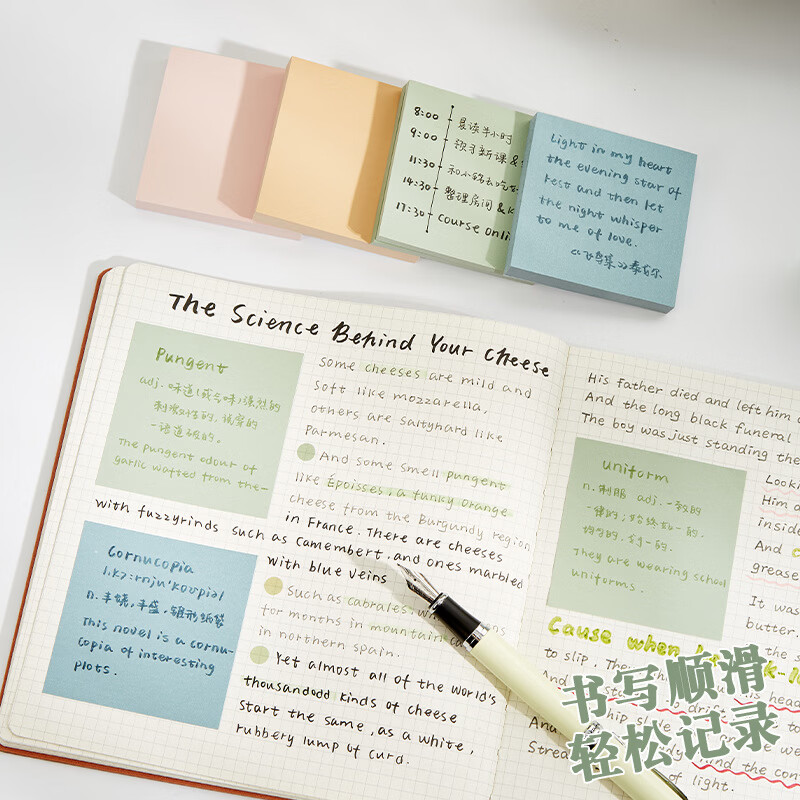 8:00 晨读半小时
9:00 预习新课&
11:30 和小铭去吃
14:30 整理房间&K
17:30 course onli
Light in my heart
the evening star of
rest and then let
the night whisper
to me of love.
《飞鸟集》泰戈尔
The Science Behind Your Cheese
Pungent
adj. 味道(或气味)强烈的
刺激性的,
一语道破的。
The pungent odour of
garlic wafted from the-
some cheeses are mild and
soft like mozzarella,
others are saltyhard like
Parmesan.
And some smell pungent
like Époisses, a funky orange
cheese from the Burgundy region
in France. There are cheeses
with fuzzyrinds such as Camembert, and ones marbled
with blue veins
Cornucopia
n. 丰饶, 丰盛, 锥形纸袋
This novel is a cornu-
copia of interesting
plots.
Such as cabrales, wh
for months in mountain ca
in northern spain.
Yet almost all of the world's
thousandodd kinds of cheese
start the same, as a white,
rubbery lump of curd.
His father died and left him
And the long black funeral
The boy was just standing the
uniform
n. 制服 adj. 一致的
一律的; 始终如一的.
均匀的.
They are wearing school
uniforms.
Looki
Him a
inside
And
grease
It was
butter.
the s
Cause when
k-lo
to slip. The
his hea
And
drift
Anu
hip slide
we
Strea
dy
mind the con
of light.
书写顺滑
轻松记录